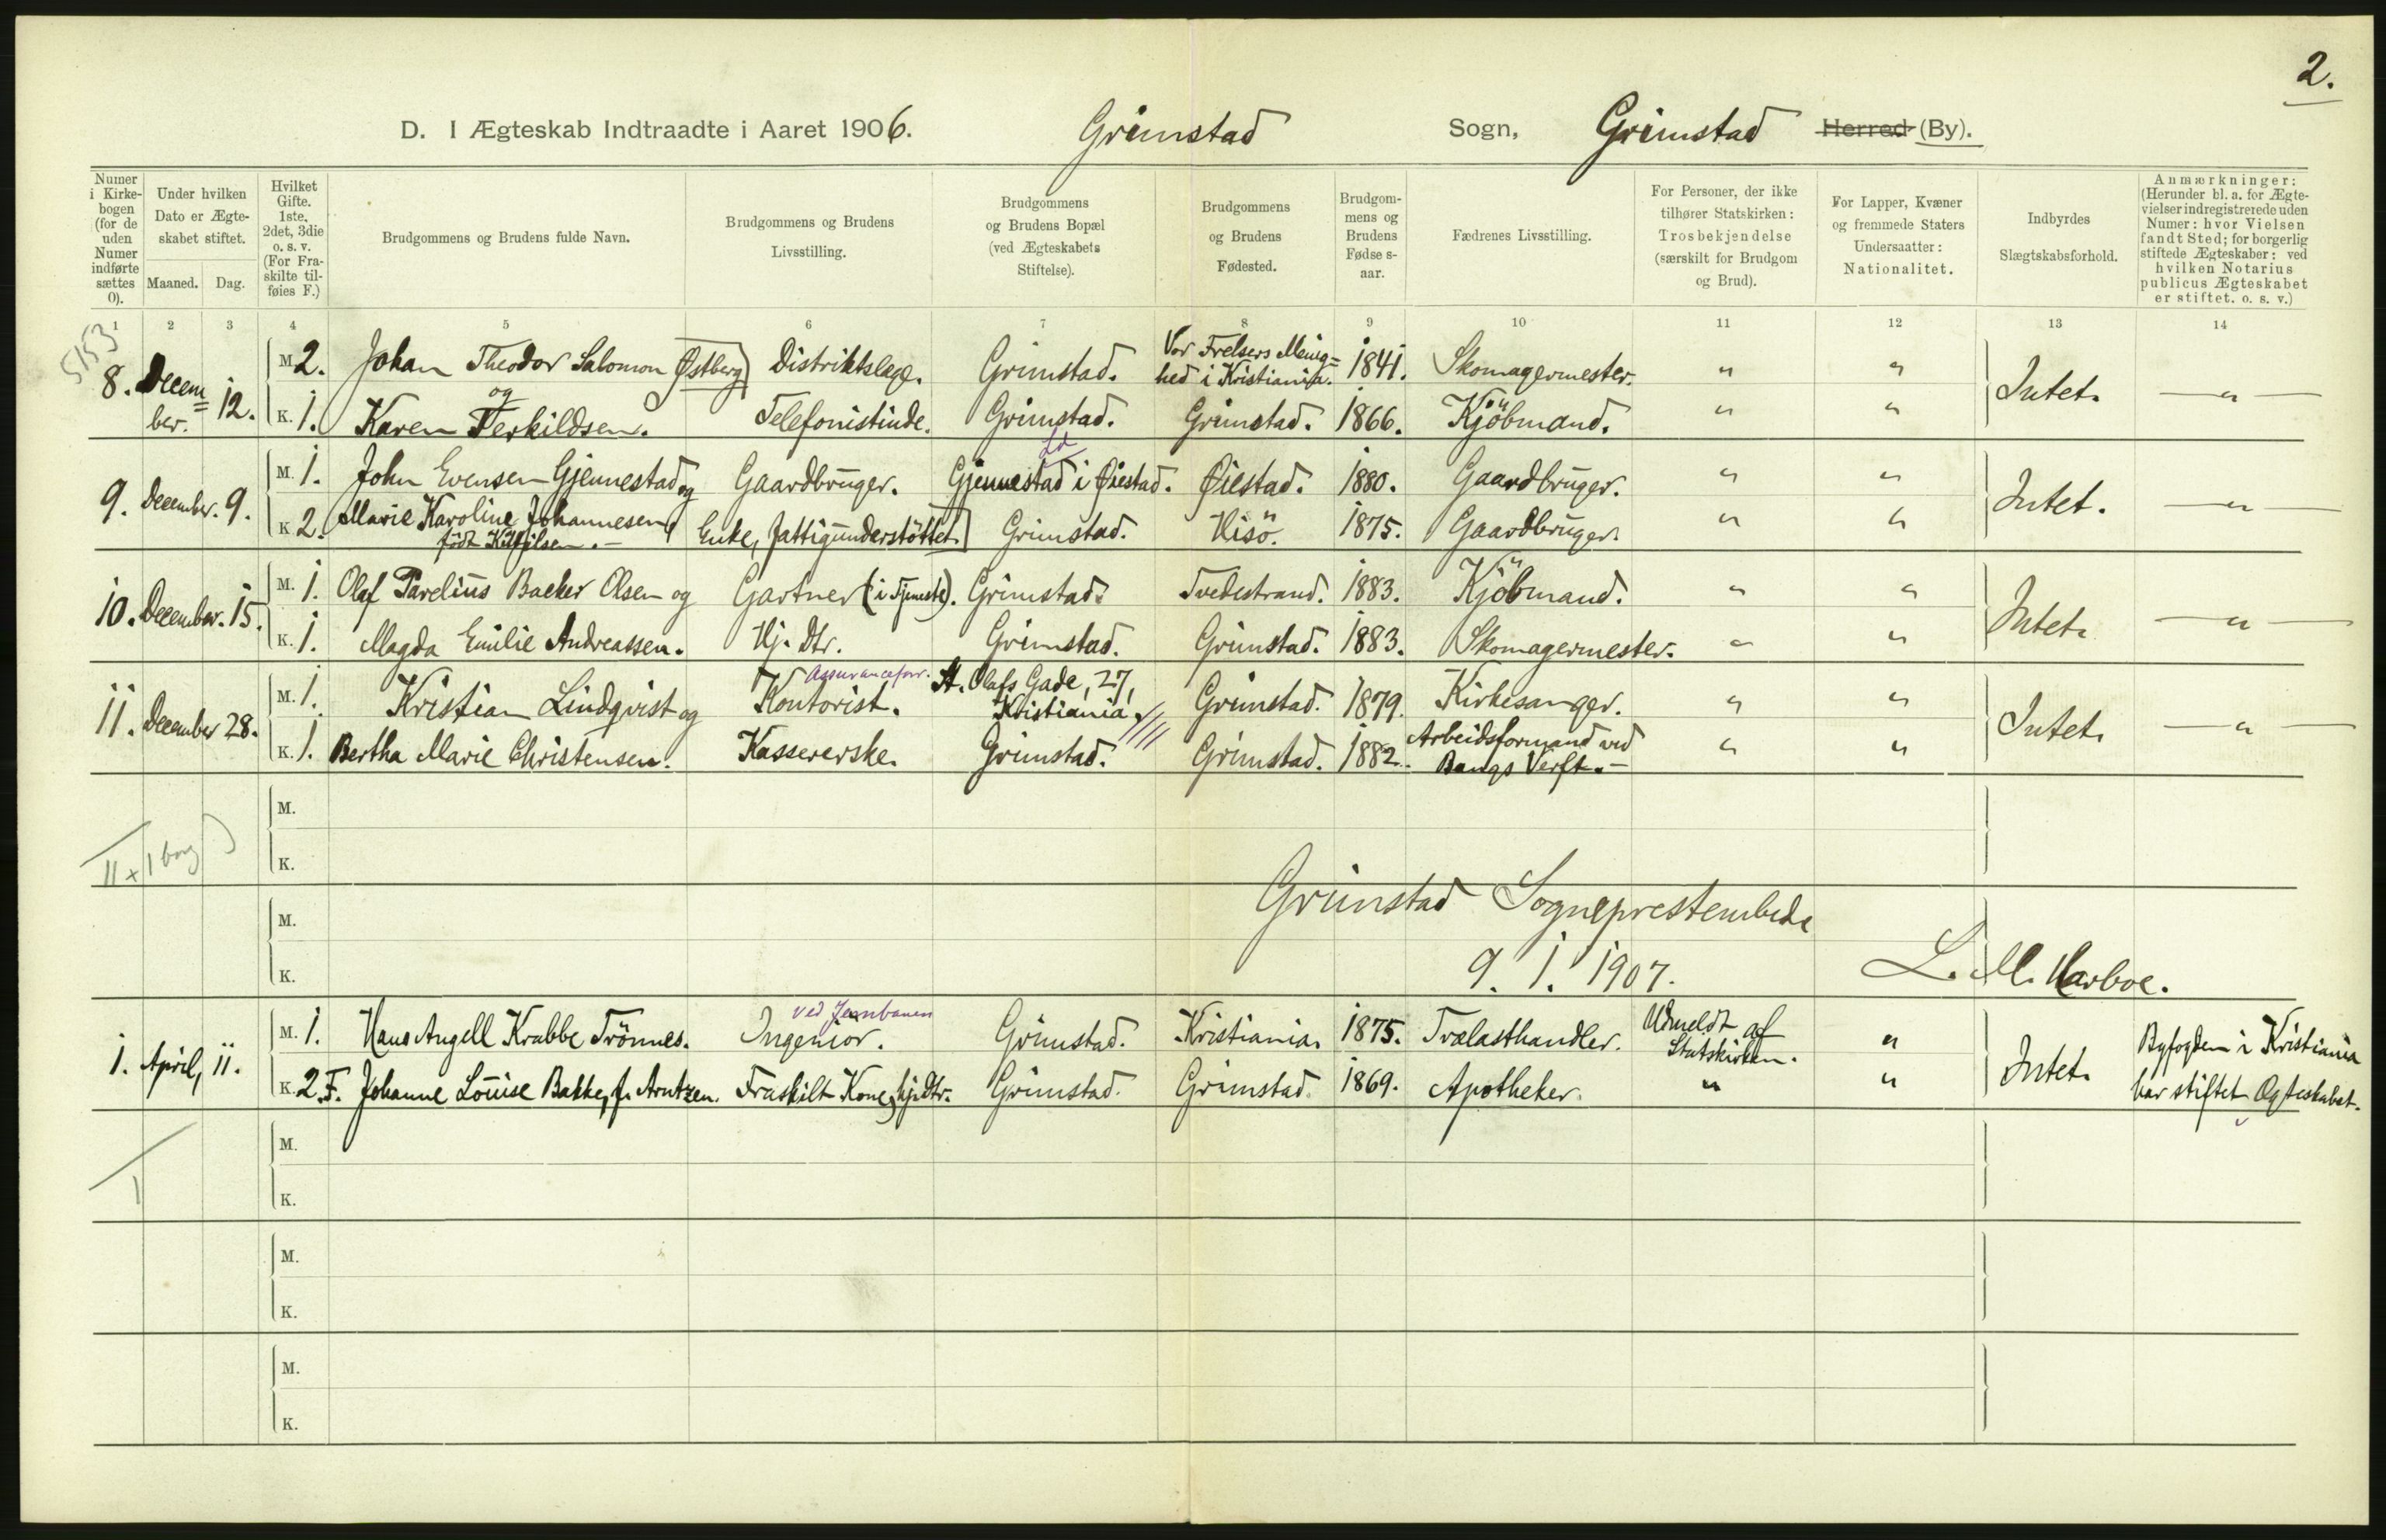 2.
D. I Ægteskab Indtraadte i Aaret 1906. Grimstad Sogn, Grimstad Herred (By).
Numer i Kirkebogen (for de uden Numer indførte sættes 0).
Under hvilken Dato er Ægteskabet stiftet.
Maaned. Dag.
Hvilket Gifte. 1ste, 2det, 3die o. s. v. (For Fraskilte tilføies F.)
Brudgommens og Brudens fulde Navn.
Brudgommens og Brudens Livsstilling.
Brudgommens og Brudens Bopæl (ved Ægteskabets Stiftelse).
Brudgommens og Brudens Fødested.
Brudgommens og Brudens Fødselsaar.
Fædrenes Livsstilling.
For Personer, der ikke tilhører Statskirken: Trosbekjendelse (særskilt for Brudgom og Brud).
For Lapper, Kvæner og fremmede Staters Undersaatter: Nationalitet.
Indbyrdes Slægtskabsforhold.
Anmærkninger: (Herunder bl. a. for Ægtevielser indregistrerede uden Numer: hvor Vielsen fandt Sted; for borgerlig stiftede Ægteskaber: ved hvilken Notarius publicus Ægteskabet er stiftet. o. s. v.)
1 2 3 4 5 6 7 8 9 10 11 12 13 14
5153
8. December. 12.
M 2. Johan Theodor Salomon Østberg og Distriktslæge. Grimstad. Vor Frelsers Menighed i Kristiania. 1841. Skomagermester. " "
K. 1. Karen Terkildsen. Telefonistinde. Grimstad. Grimstad. 1866. Kjöbmand. " " Intet. — " —
9. December. 9.
M. 1. John Evensen Gjennestad og Gaardbruger. Gjennestad i Øiestad. Ld Øiestad. 1880. Gaardbruger. " "
K 2. Marie Karoline Johannesen, født Enke, Fattigunderstöttet. Grimstad. Hisö. 1875. Gaardbruger. " " Intet. — " —
10. December. 15.
M. 1. Olaf Parelius Backer Olsen og Gartner (i Tjeneste). Grimstad. Tvedestrand. 1883. Kjöbmand. " "
K. 1. Magda Emilie Andreassen. Hj. Dtr. Grimstad. Grimstad. 1883. Skomagermester. " " Intet. — " —
11. December 28.
M. 1. Kristian Lindqvist og Assuranceforr. Kontorist. St. Olafs Gade, 27, Kristiania. Grimstad. 1879. Kirkesanger. " "
K. 1. Bertha Marie Christensen. Kassererske. Grimstad. Grimstad. 1882. Arbeidsformand ved Bangs Verft. — " " Intet. — " —
M.
K.
11 + 1 borg
M.
K.
Grimstad Sogneprestembede
9. 1. 1907.
L. M. Harboe.
1. April, 11.
M. 1. Hans Angell Krabbe Trönnes. ved Jernbanen Ingeniör. Grimstad. Kristiania. 1875. Trælasthandler. Udmeldt af Statskirken. "
K. 2. F. Johanne Louise Bakke, f. Arntzen. Fraskilt Kone, hj. Dtr. Grimstad. Grimstad 1869. Apotheker. " " Intet. Byfogden i Kristiania har stiftet Ægteskabet.
M.
K.
1
M.
K.
M.
K.